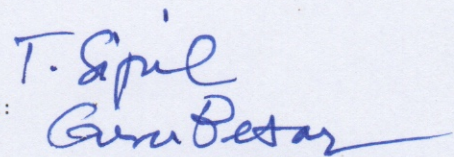 T. Sipil
: Guru Besar